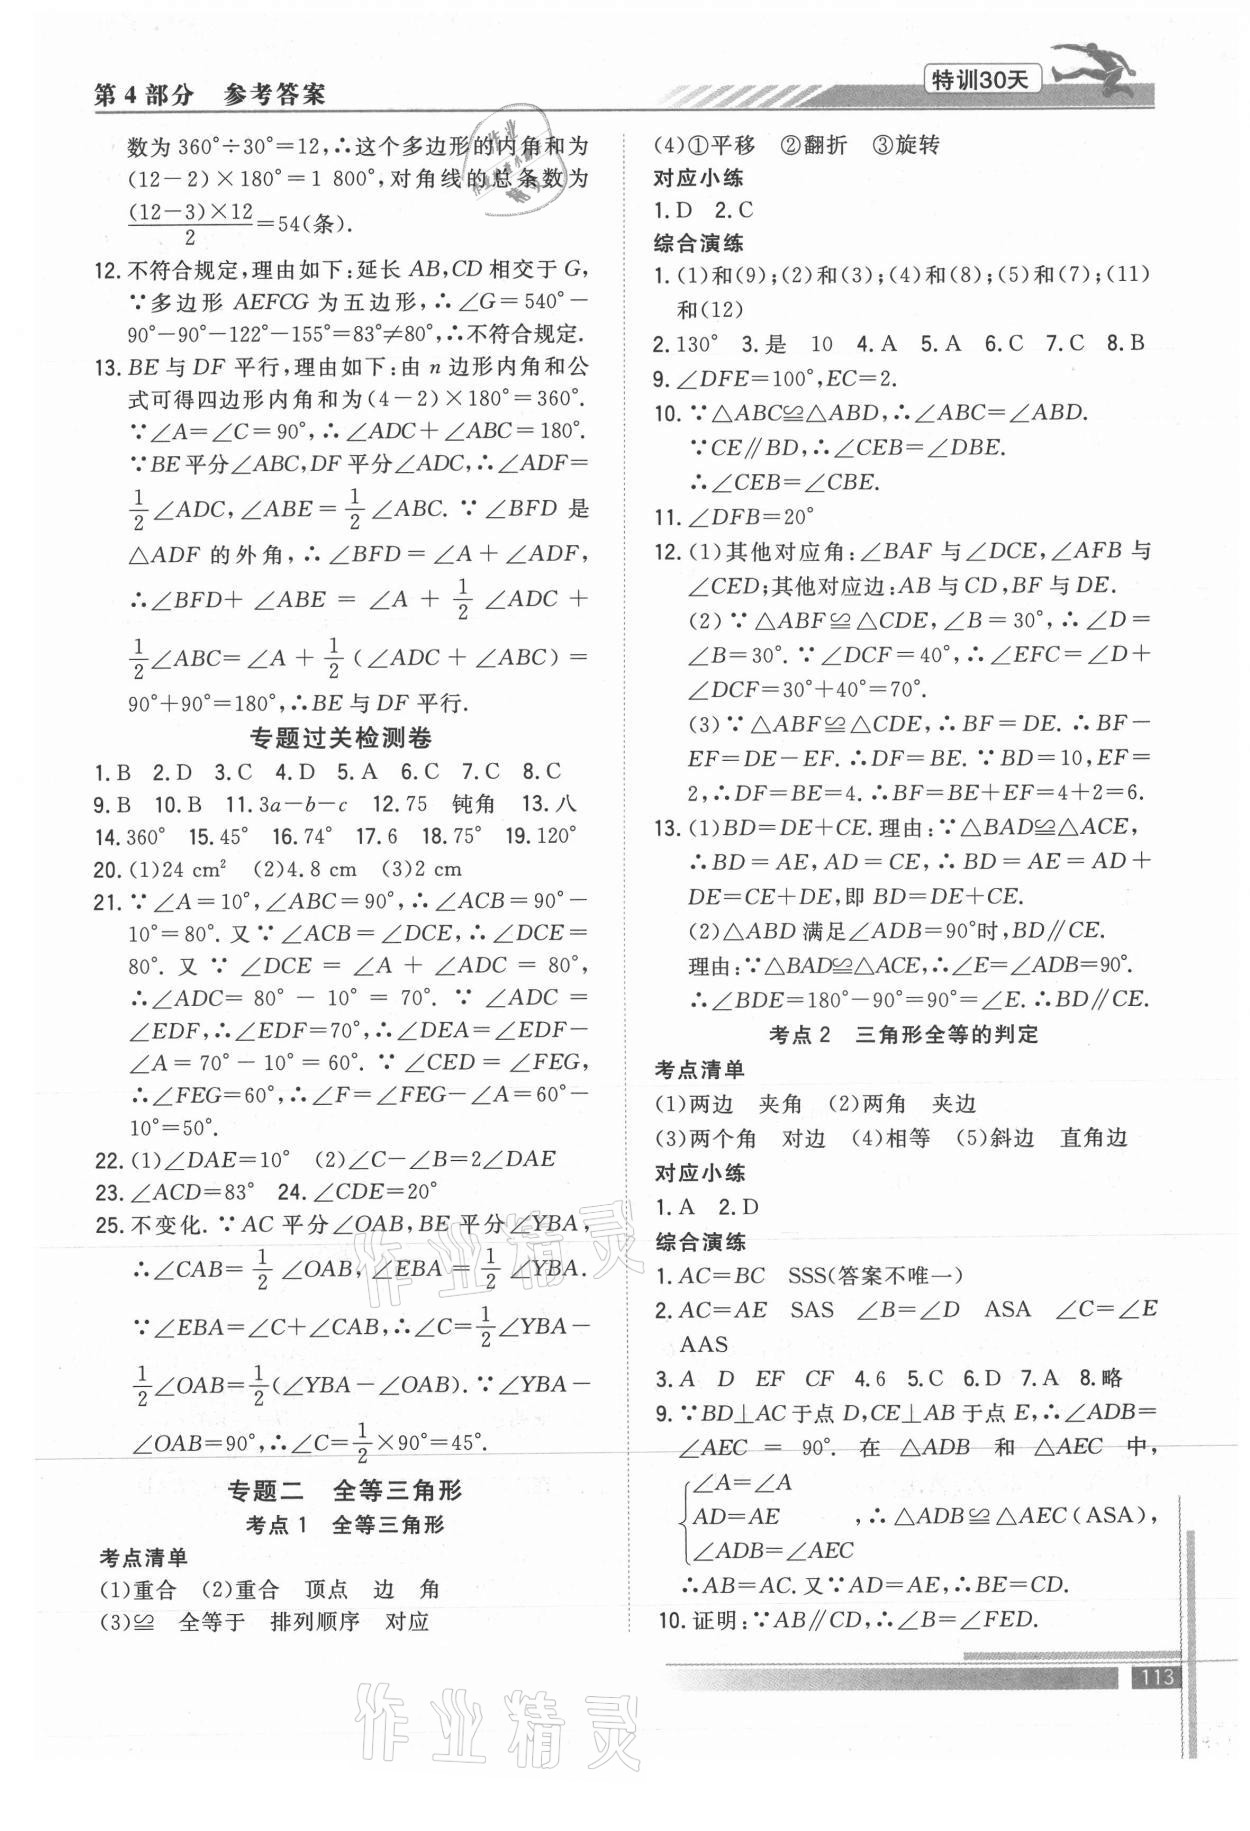 第4部分 参考答案
特训30天
数为360°÷30°=12,∴这个多边形的内角和为
(12-2)×180°=1 800°,对角线的总条数为
(12-3)×12/2=54(条).
12.不符合规定,理由如下:延长AB,CD相交于G,
∵多边形AEFCG为五边形,∴∠G=540°-
90°-90°-122°-155°=83°≠80°,∴不符合规定.
13.BE与DF平行,理由如下:由n边形内角和公
式可得四边形内角和为(4-2)×180°=360°.
∵∠A=∠C=90°,∴∠ADC+∠ABC=180°.
∵BE平分∠ABC,DF平分∠ADC,∴∠ADF=
1/2∠ADC,∠ABE=1/2∠ABC.∵∠BFD是
△ADF的外角,∴∠BFD=∠A+∠ADF,
∴∠BFD+∠ABE=∠A+1/2∠ADC+
1/2∠ABC=∠A+1/2(∠ADC+∠ABC)=
90°+90°=180°,∴BE与DF平行.
专题过关检测卷
1.B 2.D 3.C 4.D 5.A 6.C 7.C 8.C
9.B 10.B 11.3a-b-c 12.75 钝角 13.八
14.360° 15.45° 16.74° 17.6 18.75° 19.120°
20.(1)24 cm² (2)4.8 cm (3)2 cm
21.∵∠A=10°,∠ABC=90°,∴∠ACB=90°-
10°=80°.又∵∠ACB=∠DCE,∴∠DCE=
80°.又∵∠DCE=∠A+∠ADC=80°,
∴∠ADC=80°-10°=70°.∵∠ADC=
∠EDF,∴∠EDF=70°,∴∠DEA=∠EDF-
∠A=70°-10°=60°.∵∠CED=∠FEG,
∴∠FEG=60°,∴∠F=∠FEG-∠A=60°-
10°=50°.
22.(1)∠DAE=10° (2)∠C-∠B=2∠DAE
23.∠ACD=83° 24.∠CDE=20°
25.不变化.∵AC平分∠OAB,BE平分∠YBA,
∴∠CAB=1/2∠OAB,∠EBA=1/2∠YBA.
∵∠EBA=∠C+∠CAB,∴∠C=1/2∠YBA-
1/2∠OAB=1/2(∠YBA-∠OAB).∵∠YBA-
∠OAB=90°,∴∠C=1/2×90°=45°.
专题二 全等三角形
考点1 全等三角形
考点清单
(1)重合 (2)重合 顶点 边 角
(3)≌ 全等于 排列顺序 对应
(4)①平移 ②翻折 ③旋转
对应小练
1.D 2.C
综合演练
1.(1)和(9);(2)和(3);(4)和(8);(5)和(7);(11)
和(12)
2.130° 3.是 10 4.A 5.A 6.C 7.C 8.B
9.∠DFE=100°,EC=2.
10.∵△ABC≌△ABD,∴∠ABC=∠ABD.
∵CE∥BD,∴∠CEB=∠DBE.
∴∠CEB=∠CBE.
11.∠DFB=20°
12.(1)其他对应角:∠BAF与∠DCE,∠AFB与
∠CED;其他对应边:AB与CD,BF与DE.
(2)∵△ABF≌△CDE,∠B=30°,∴∠D=
∠B=30°.∵∠DCF=40°,∴∠EFC=∠D+
∠DCF=30°+40°=70°.
(3)∵△ABF≌△CDE,∴BF=DE.∴BF-
EF=DE-EF.∴DF=BE.∵BD=10,EF=
2,∴DF=BE=4.∴BF=BE+EF=4+2=6.
13.(1)BD=DE+CE.理由:∵△BAD≌△ACE,
∴BD=AE,AD=CE,∴BD=AE=AD+
DE=CE+DE,即BD=DE+CE.
(2)△ABD满足∠ADB=90°时,BD∥CE.
理由:∵△BAD≌△ACE,∴∠E=∠ADB=90°.
∴∠BDE=180°-90°=90°=∠E.∴BD∥CE.
考点2 三角形全等的判定
考点清单
(1)两边 夹角 (2)两角 夹边
(3)两个角 对边 (4)相等 (5)斜边 直角边
对应小练
1.A 2.D
综合演练
1.AC=BC SSS(答案不唯一)
2.AC=AE SAS ∠B=∠D ASA ∠C=∠E
AAS
3.A D EF CF 4.6 5.C 6.D 7.A 8.略
9.∵BD⊥AC于点D,CE⊥AB于点E,∴∠ADB=
∠AEC=90°.在△ADB和△AEC中,
∠A=∠A
AD=AE ,∴△ADB≌△AEC(ASA),
∠ADB=∠AEC
∴AB=AC.又∵AD=AE,∴BE=CD.
10.证明:∵AB∥CD,∴∠B=∠FED.
113
作业精灵
作业精灵